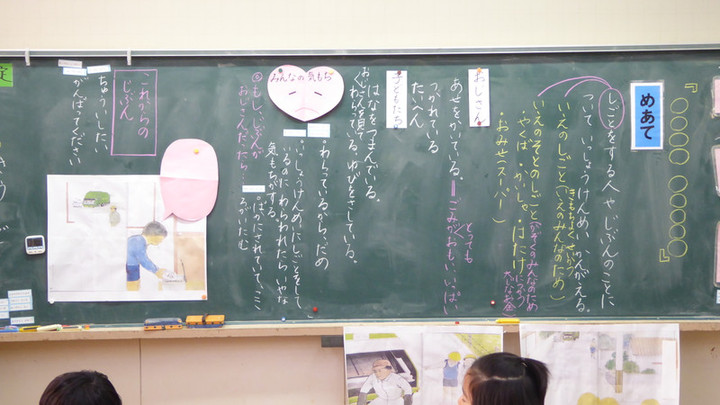 『○○○○ ○○○○○』
めあて
しごとをする人やじぶんのことに
ついて、いっしょうけんめいかんがえる。
きもちよくせいかつ
いえのしごと(いえのみんなのため)
いえのそとのしごと
かぞくのみんなのため
・やくば・かいしゃ・はたけ
・おみせ(スーパー)
おじさん
あせをかいている。
とっても
ごみがおもい、いっぱい
つかれている
たいへん
子どもたち
はなをつまんでいる。
おじさんを見てゆびをさしている。
わらっている。
みんなの気もち
・わらっているから、だめ
・いっしょうけんめいにしごとをして
いるのにわらわれたら、いやな
気もちがする。
・ばかにされていて、こころがいたむ
◎もし、じぶんが
おじさんだったら
これからの
じぶん
ちゅういしたい
がんばってください
定